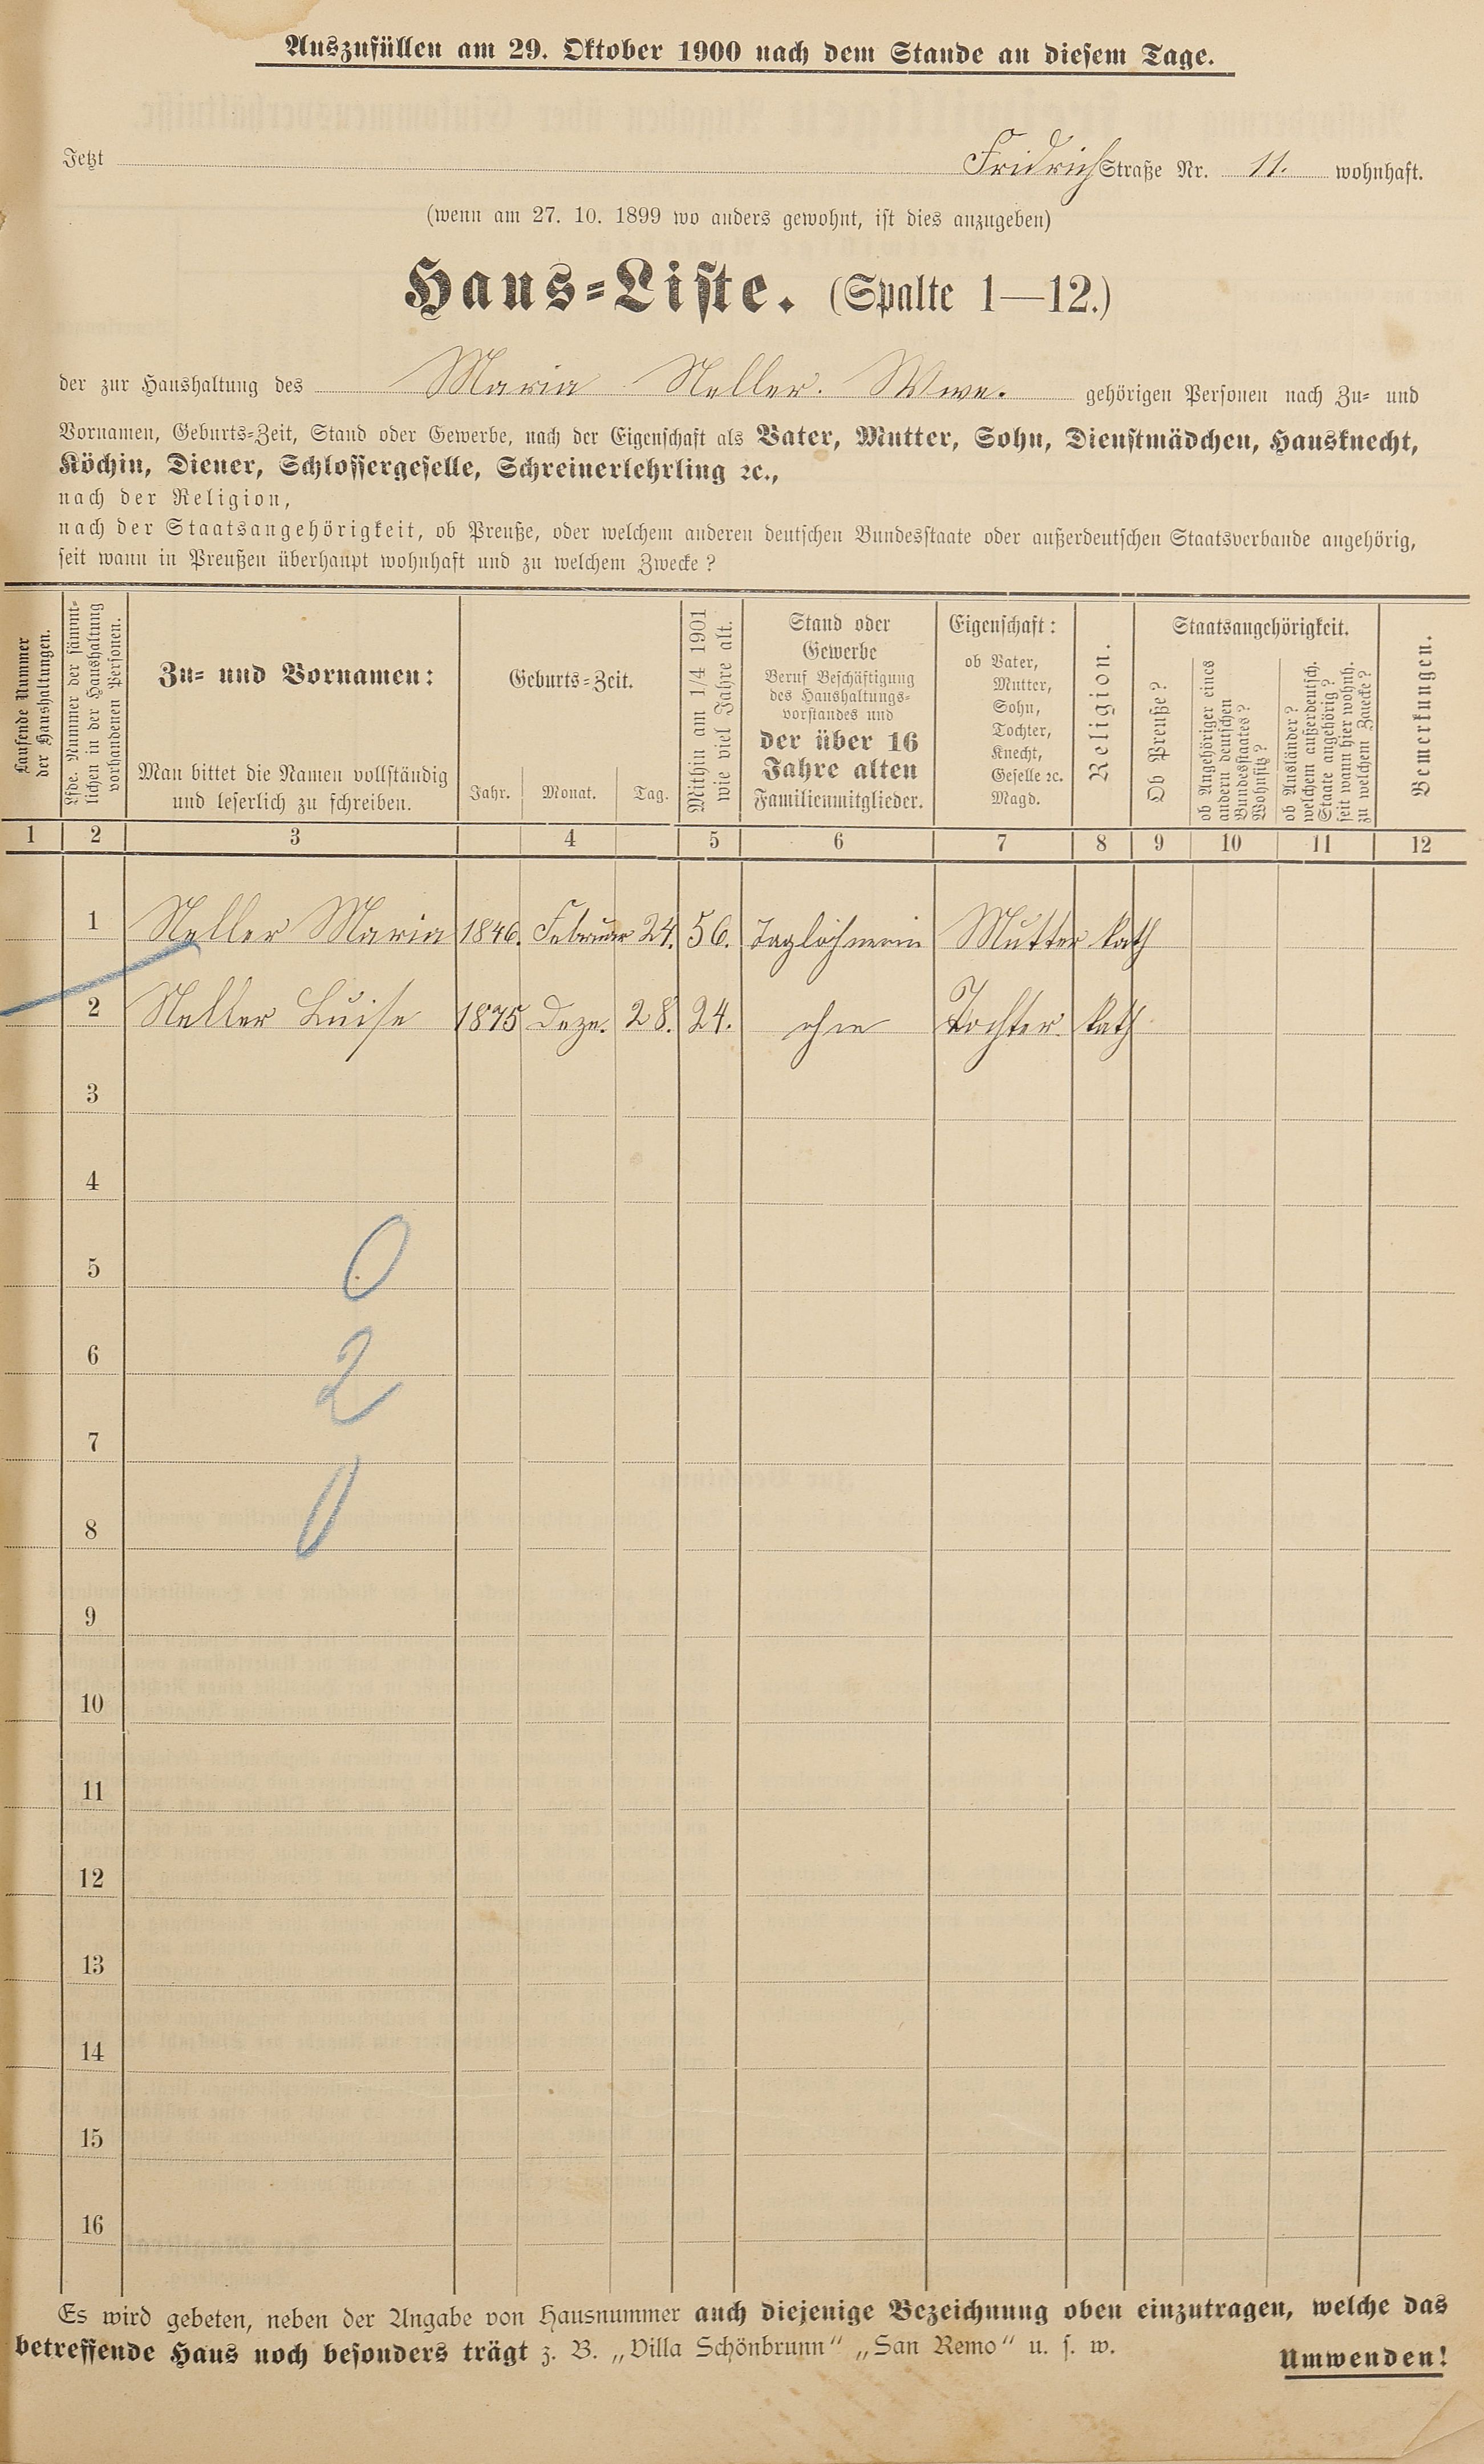 Auszufüllen am 29. Oktober 1900 nach dem Stande an diesem Tage.
Jetzt Fridrich Straße Nr. 11. wohnhaft.
(wenn am 27. 10. 1899 wo anders gewohnt, ist dies anzugeben)
Haus=Liste. (Spalte 1—12.)
der zur Haushaltung des Maria Neller. Wwe. gehörigen Personen nach Zu= und
Vornamen, Geburts=Zeit, Stand oder Gewerbe, nach der Eigenschaft als Vater, Mutter, Sohn, Dienstmädchen, Hausknecht,
Köchin, Diener, Schlossergeselle, Schreinerlehrling ꝛc.,
nach der Religion,
nach der Staatsangehörigkeit, ob Preuße, oder welchem anderen deutschen Bundesstaate oder außerdeutschen Staatsverbande angehörig,
seit wann in Preußen überhaupt wohnhaft und zu welchem Zwecke?
Laufende Nummer
der Haushaltungen.
Lfde. Nummer der sämmt=
lichen in der Haushaltung
vorhandenen Personen.
Zu= und Vornamen:
Man bittet die Namen vollständig
und leserlich zu schreiben.
Geburts=Zeit.
Jahr. Monat. Tag.
Mithin am 1/4 1901
wie viel Jahre alt.
Stand oder
Gewerbe
Beruf Beschäftigung
des Haushaltungs=
vorstandes und
der über 16
Jahre alten
Familienmitglieder.
Eigenschaft:
ob Vater,
Mutter,
Sohn,
Tochter,
Knecht,
Geselle ꝛc.
Magd.
Religion.
Staatsangehörigkeit.
Ob Preuße?
ob Angehöriger eines
andern deutschen
Bundesstaates?
Wohnsitz?
ob Ausländer?
welchem außerdeutsch.
Staate angehörig?
seit wann hier wohnh.
zu welchem Zwecke?
Bemerkungen.
1 2 3 4 5 6 7 8 9 10 11 12
1 Neller Maria 1846. Februar 24. 56. Taglöhnerin Mutter kath
2 Neller Luise 1875 Deze. 28. 24. ohne Tochter kath
3
4
5
0
6
2
7
8
0
9
10
11
12
13
14
15
16
Es wird gebeten, neben der Angabe von Hausnummer auch diejenige Bezeichnung oben einzutragen, welche das
betreffende Haus noch besonders trägt z. B. „Villa Schönbrunn" „San Remo" u. s. w.
Umwenden!